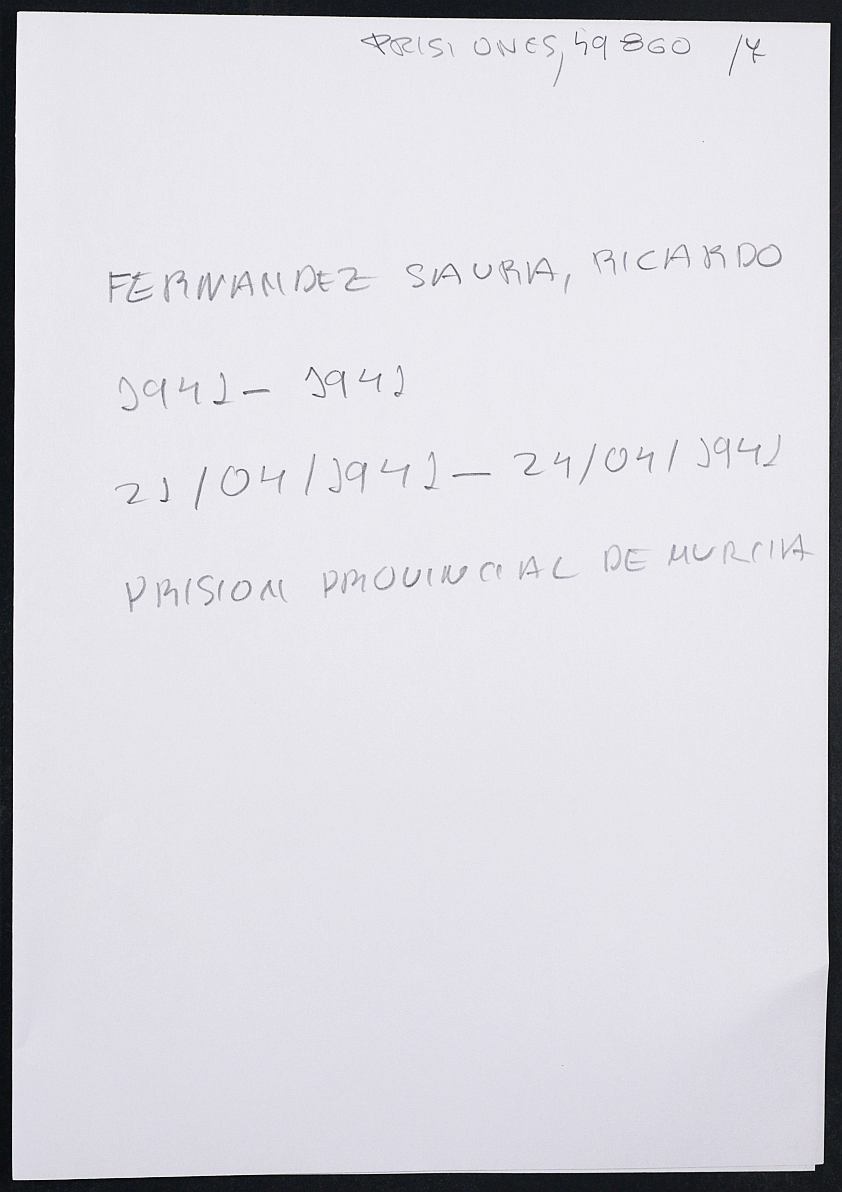 PRISIONES, 49860 /7
FERNANDEZ SAURA, RICARDO
1941 - 1941
21/04/1941 - 24/04/1941
PRISION PROVINCIAL DE MURCIA